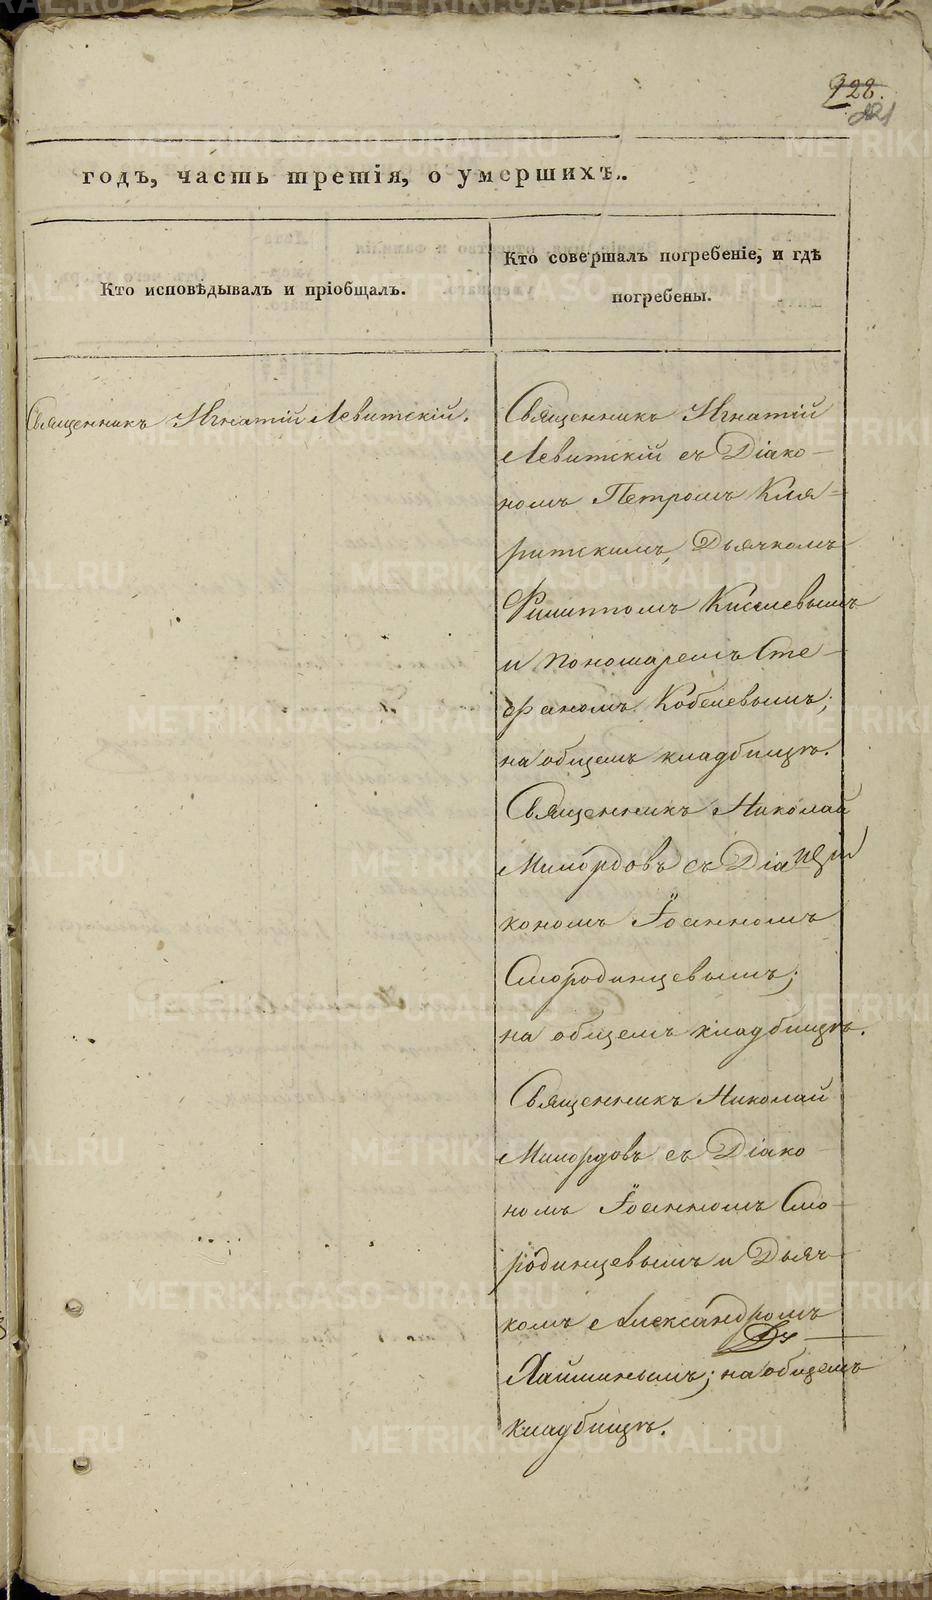 928.
921
годъ, часть третія, о умершихъ.
Кто исповѣдывалъ и пріобщалъ.
Кто совершалъ погребеніе, и гдѣ
погребены.
Священникъ Игнатій Левитскій.
Священникъ Игнатій
Левитскій съ Діако-
номъ Петромъ Кля=
ритскимъ, Дьячкомъ
Филиппомъ Киселевымъ
и пономаремъ Сте-
фаномъ Кобелевымъ;
на общемъ кладбищѣ.
Священникъ Николай
Милордовъ съ Діа
кономъ Іоанномъ
Смородинцевымъ;
на общемъ кладбищѣ.
Священникъ Николай
Милордовъ съ Діако-
номъ Іоанномъ Смо-
родинцевымъ и Дьяч-
комъ Александромъ
Хайминымъ; на общемъ
кладбищѣ.
METRIKI.GASO-URAL.RU